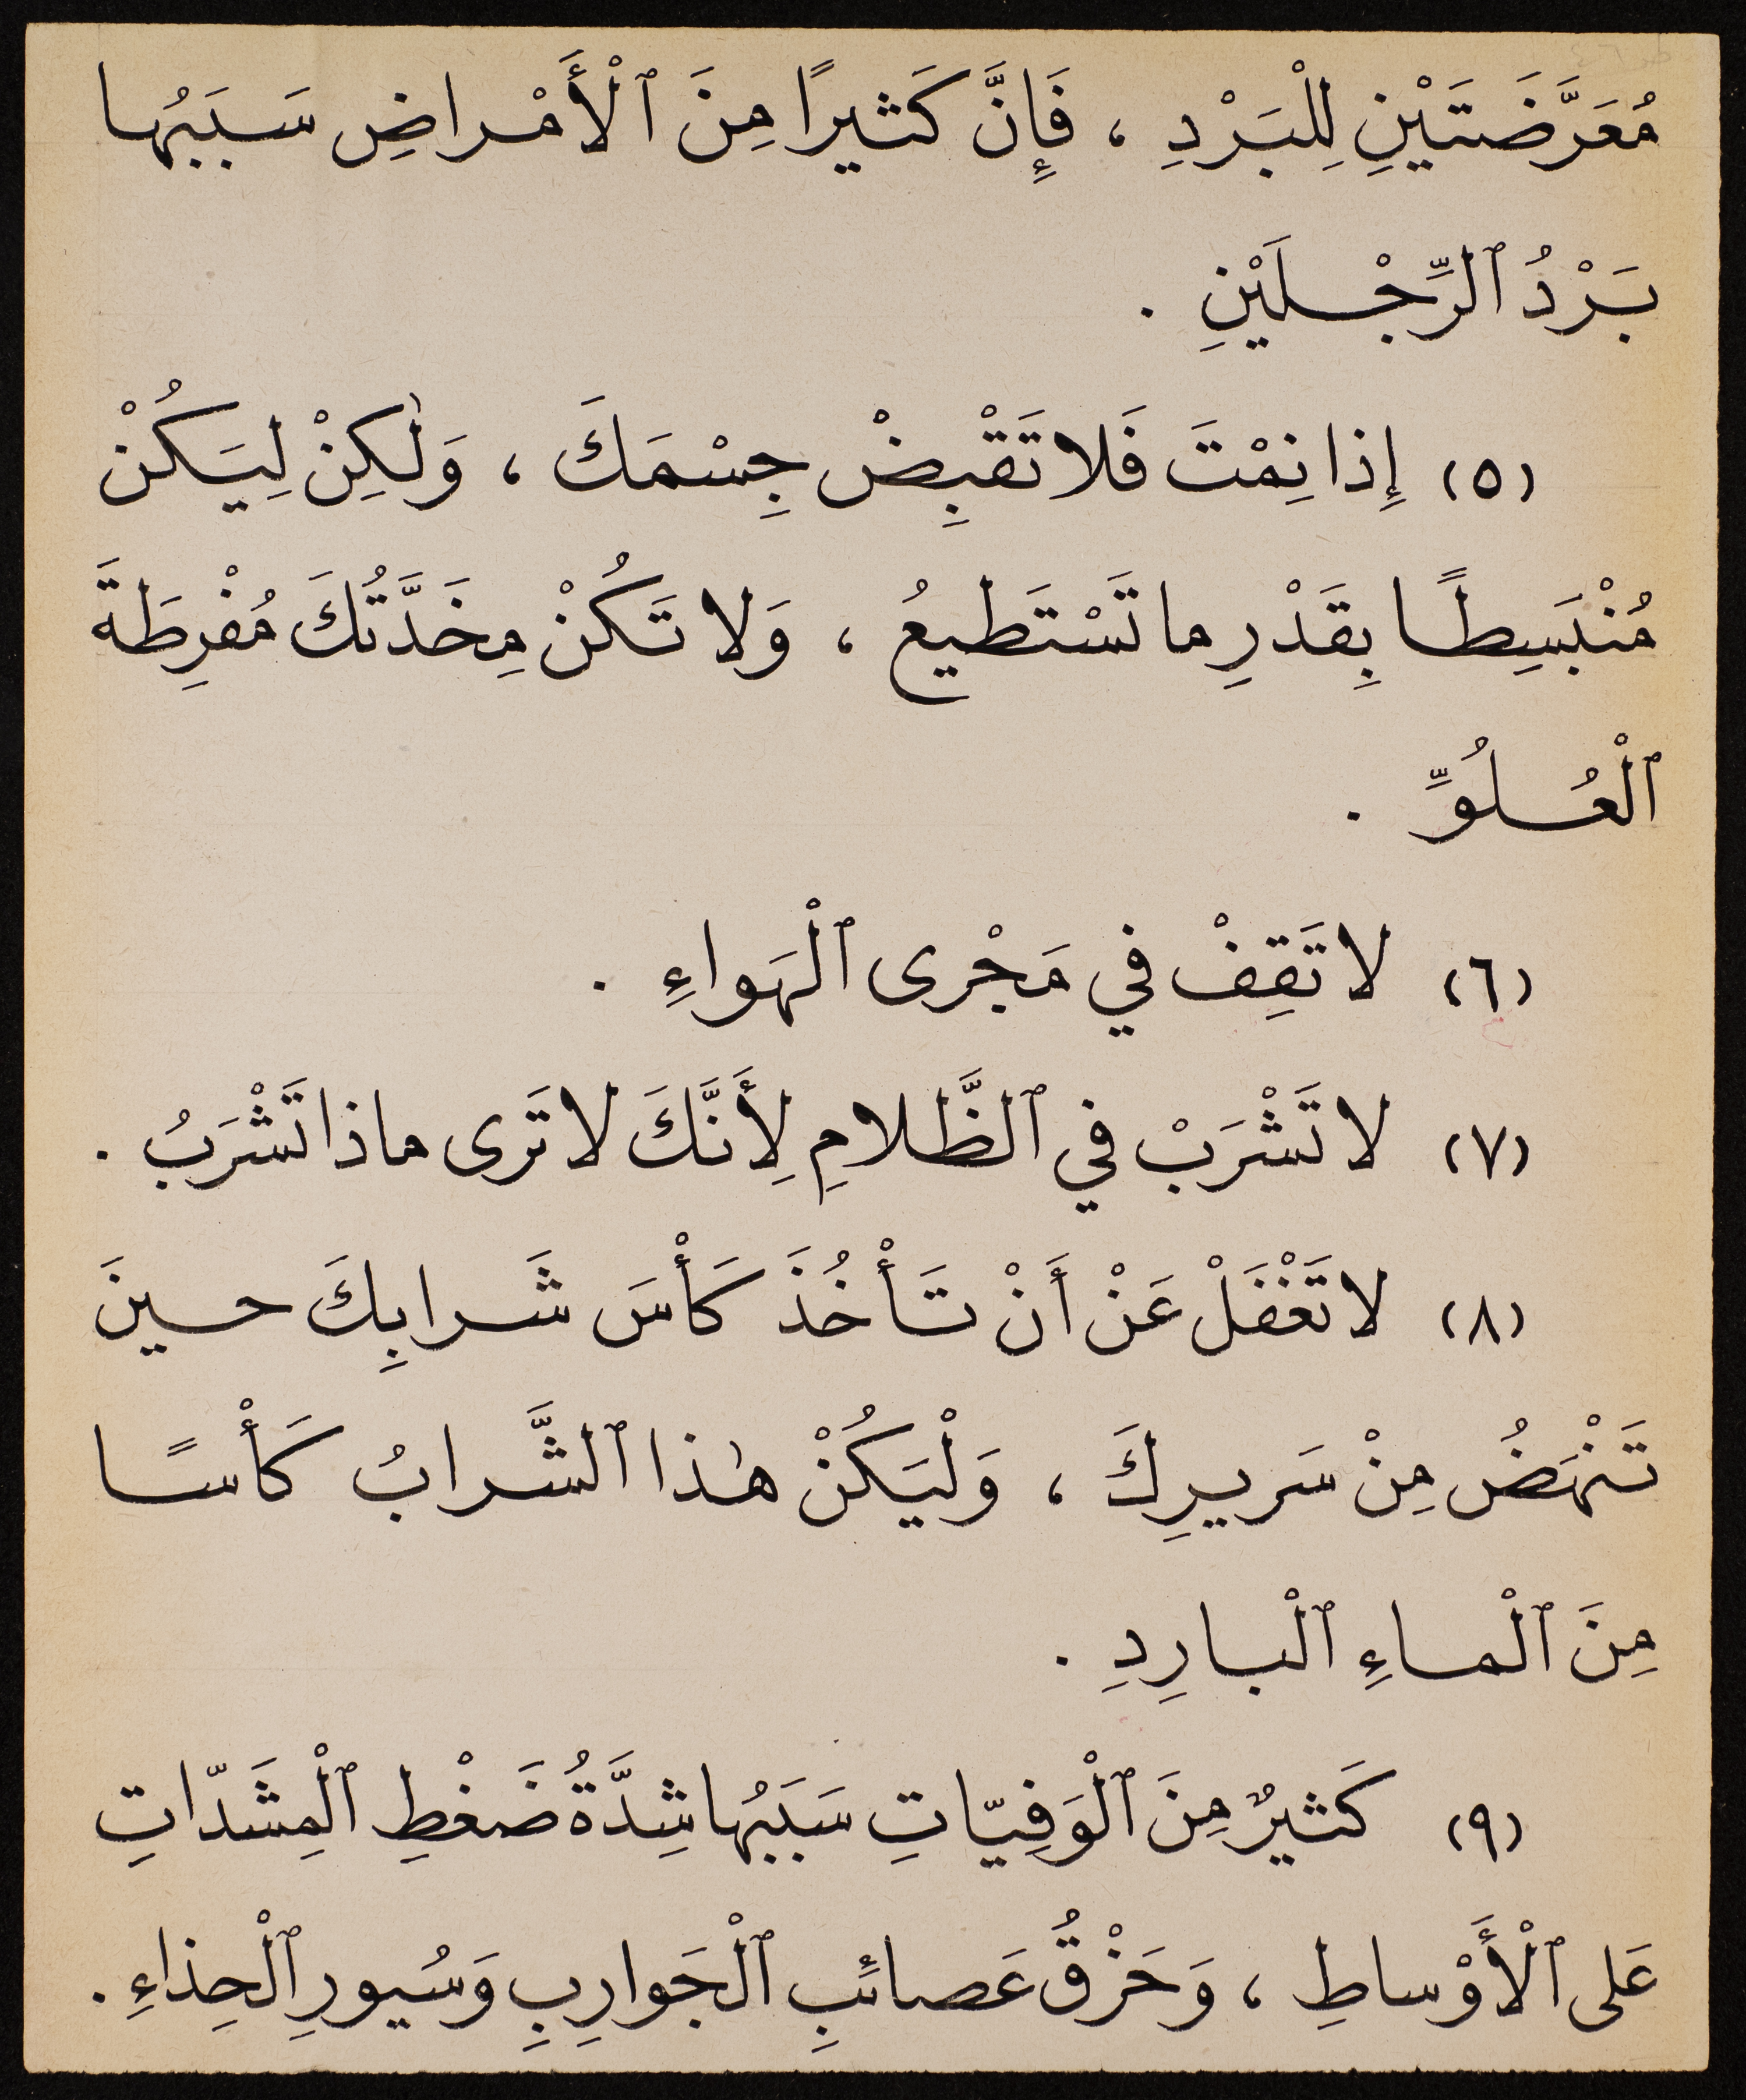 مُعَرَّضَتَيْنِ لِلْبَرْدِ ، فَإِنَّ كَثيرًا مِنَ ٱلْأَمْراضِ سَبَبُها
بَرْدُ ٱلرِّجْلَيْنِ .
(٥) إِذا نِمْتَ فَلا تَقْبِضْ جِسْمَكَ ، وَلٰكِنْ لِيَكُنْ
مُنْبَسِطًا بِقَدْرِ ما تَسْتَطيعُ ، وَلا تَكُنْ مِخَدَّتُكَ مُفْرِطَةَ
ٱلْعُلُوِّ .
(٦) لا تَقِفْ في مَجْرى ٱلْهَواءِ .
(٧) لا تَشْرَبْ في ٱلظَّلامِ لِأَنَّكَ لا تَرى ماذا تَشْرَبُ .
(٨) لا تَغْفَلْ عَنْ أَنْ تَأْخُذَ كَأْسَ شَرابِكَ حينَ
تَنْهَضُ مِنْ سَريرِكَ ، وَلْيَكُنْ هٰذا ٱلشَّرابُ كَأْسًا
مِنَ ٱلْماءِ ٱلْبارِدِ .
(٩) كَثيرٌ مِنَ ٱلْوَفِيّاتِ سَبَبُها شِدَّةُ ضَغْطِ ٱلْمِشَدّاتِ
عَلى ٱلْأَوْساطِ ، وَحَزْقُ عَصائِبِ ٱلْجَوارِبِ وَسُيورِ ٱلْحِذاءِ .